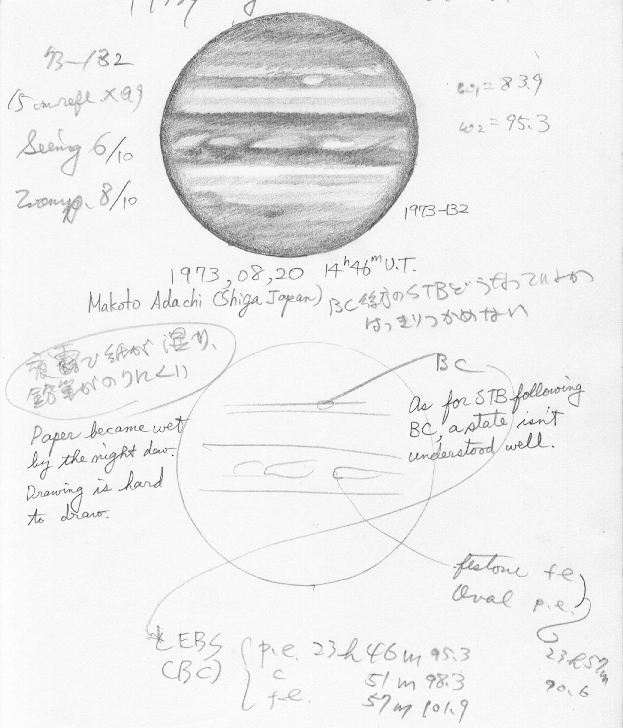 73-132
15cm refl. ×99
Seeing 6/10
8/10
ω1=83.9
ω2=95.3
1973-132
1973,08,20 14h46m U.T.
Makoto Adachi (Shiga Japan)
BC後方のSTBどうなっているか
はっきりつかめない
夜露で紙が湿り、
鉛筆がのりにくい
BC
As for STB following
BC, a state isn't
understood well.
Paper became wet
by the night daw.
Drawing is hard
to draw.
festone f.e.
Oval p.e.
23h57m
90.6
EBS
(BC)
p.e. 23h46m 95.3
c 51m 98.3
f.e. 57m 101.9